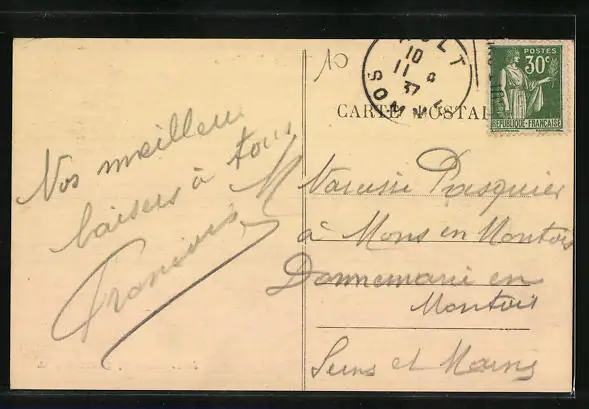 10
ULT
10
11
37
SOMME
CARTE POSTAL
POSTES
30c
REPUBLIQUE FRANCAISE
Nos meilleurs
baisers à tous
Francine
M Narcisse Pasquier
à Mons en Montois
Donnemarie en
Montois
Seine et Marne